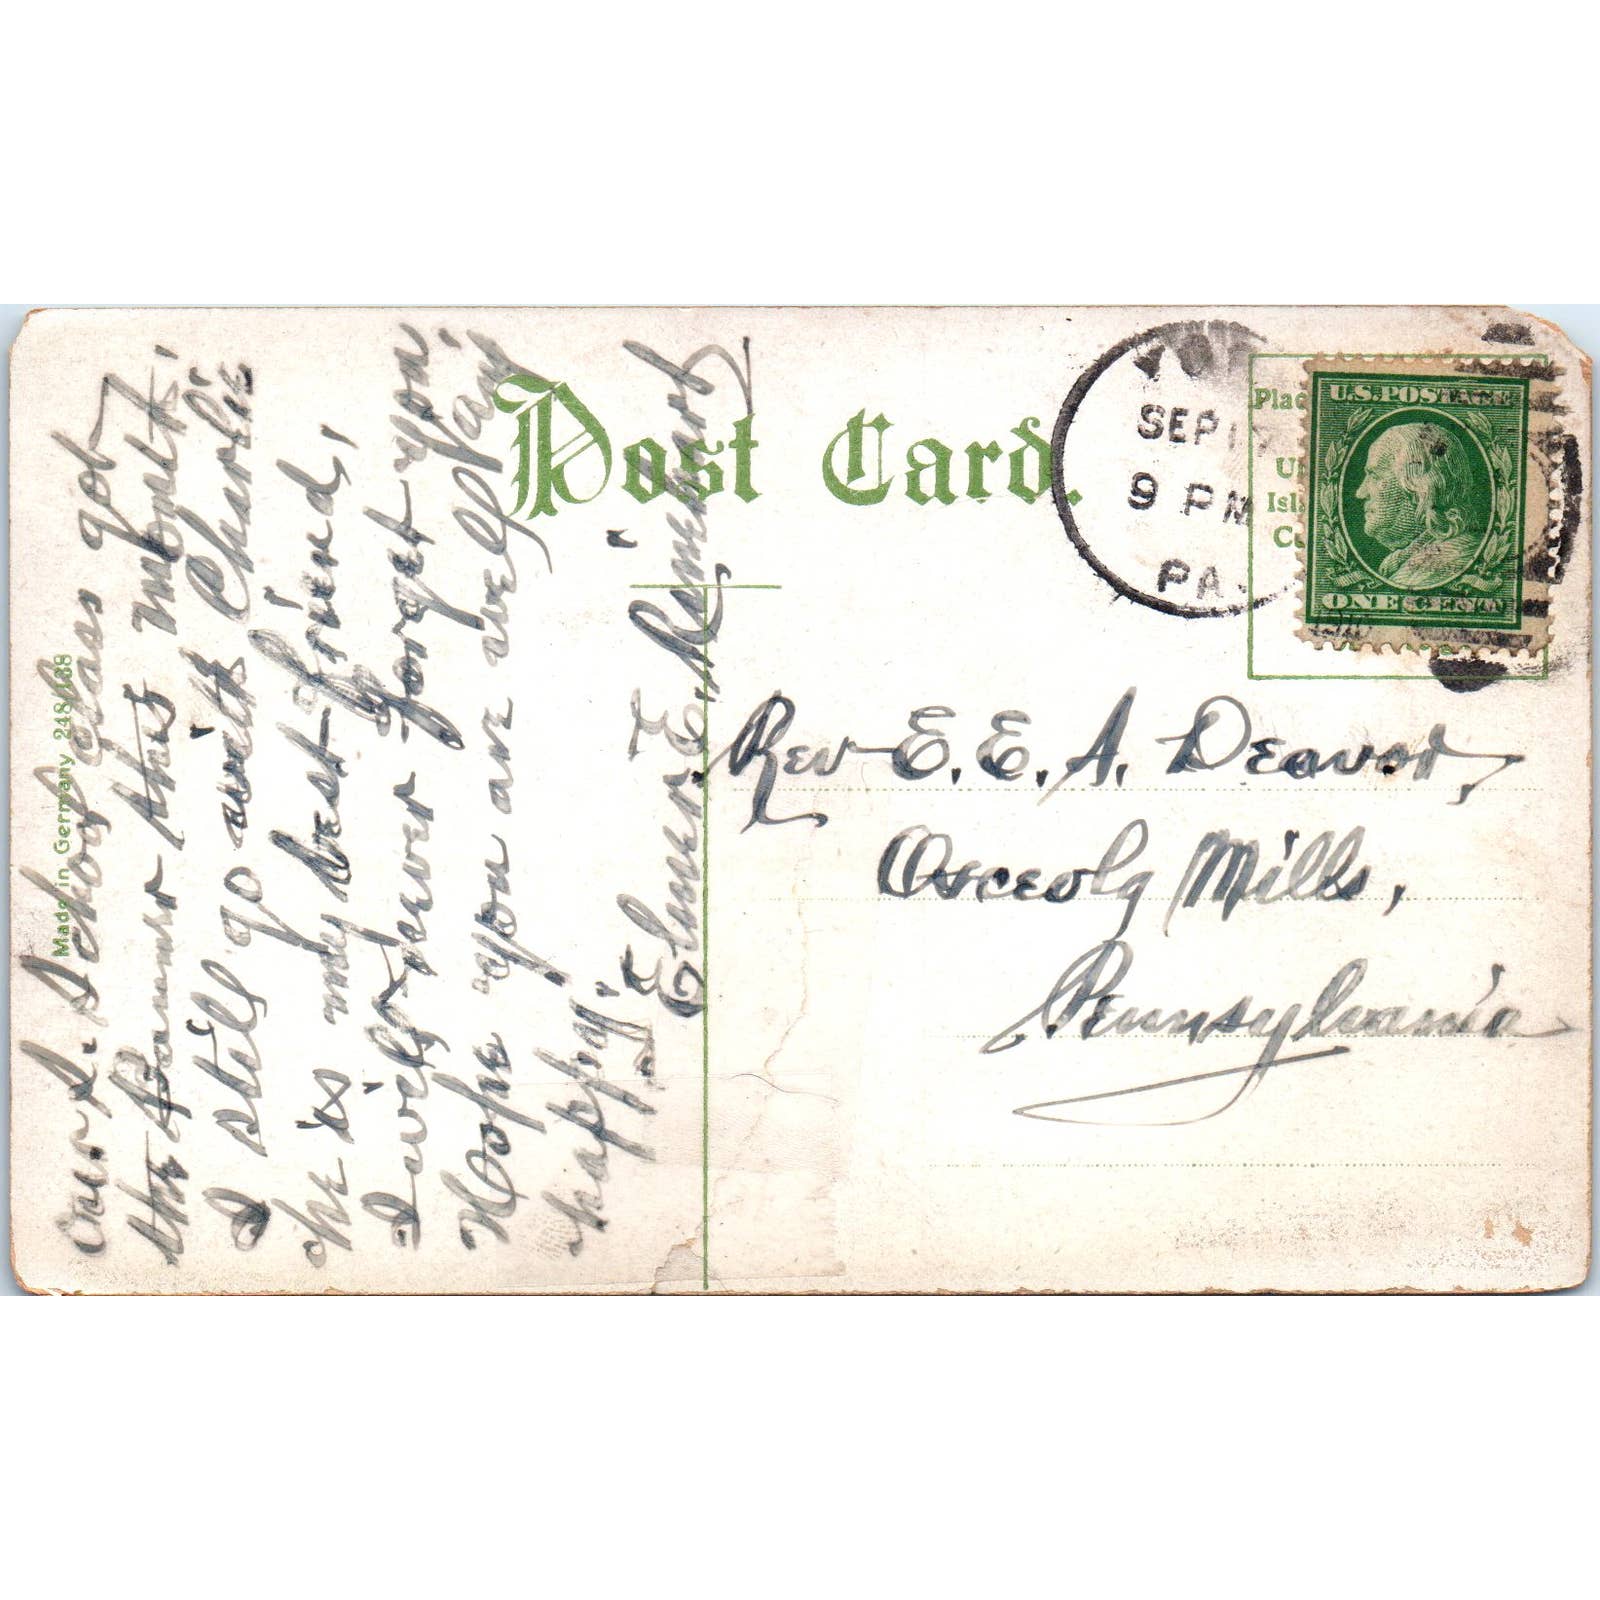 Post Card.
Made in Germany 248/188
YORK
SEP 17
9 PM
PA.
Plac
U.S. POSTAGE
ONE CENT
our S. School class got
the Banner this mbonth.
I still go with Charlie
he is my best friend,
I will never forget you.
Hope you are well &
happy.
Elmer E.
Rev E. E. A. Deavor,
Osceola Mills,
Pennsylvania